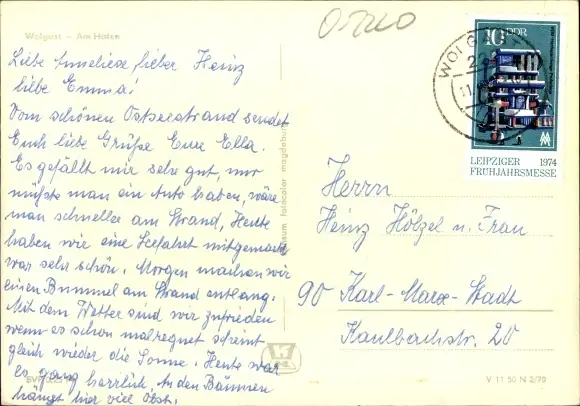 Wolgast - Am Hafen
Liebe Anneliese, lieber Heinz
liebe Emma!
Vom schönen Ostseestrand sendet
Euch liebe Grüße Eure Ella.
Es gefällt mir sehr gut, nur
müßte man ein Auto haben, wäre
man schneller am Strand, Heute
haben wir eine Seefahrt mitgemacht
war sehr schön. Morgen machen wir
einen Bummel am Strand entlang.
Mit dem Wetter sind wir zufrieden
wenn es schon mal regnet scheint
gleich wieder die Sonne. Heute war
es ganz herrlich. An den Bäumen
hängt hier viel Obst.
WOLGAST
10 DDR
LEIPZIGER 1974
FRÜHJAHRSMESSE
Herrn
Heinz Hölzel u. Frau
90 Karl-Marx-Stadt
Kaulbachstr. 20
foto color magdeburg
V 11 50 N 2/70